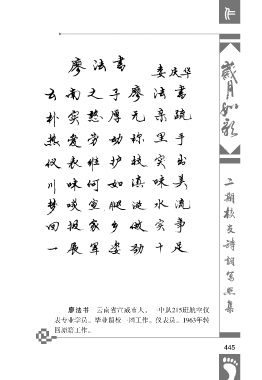 廖法书
娄庆华
云南之子廖法书
朴实憨厚无亲疏
热爱劳动称里手
仪表维护技实出
川味何如滇味美
回报家乡做实事
一展军姿劲十足
廖法书 云南省宣威市人。一中队215班航空仪
表专业学员。毕业留校一团工作。仪表员。1963年转
回原籍工作。
岁月如歌
二期校友诗词写照集
445